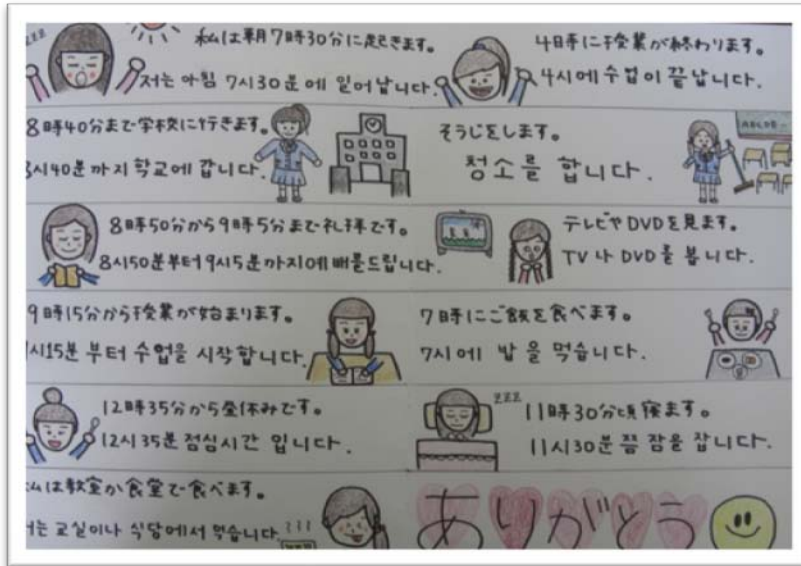 私は朝7時30分に起きます。
저는 아침 7시30분에 일어납니다.
8時40分まで学校に行きます。
시40분까지 학교에 갑니다.
8時50分から9時5分まで礼拝です。
8시50분부터 9시5분까지 예배를드립니다.
9時15分から授業が始まります。
시15분 부터 수업을 시작합니다.
12時35分から昼休みです。
12시35분 점심시간 입니다.
私は教室か食堂で食べます。
는 교실이나 식당에서 먹습니다.
4時に授業が終わります。
4시에 수업이 끝납니다.
そうじをします。
청소를 합니다.
テレビやDVDを見ます。
TV나 DVD를 봅니다.
7時にご飯を食べます。
7시에 밥을 먹습니다.
11時30分頃寝ます。
11시30분쯤 잠을 잡니다.
ありがとう